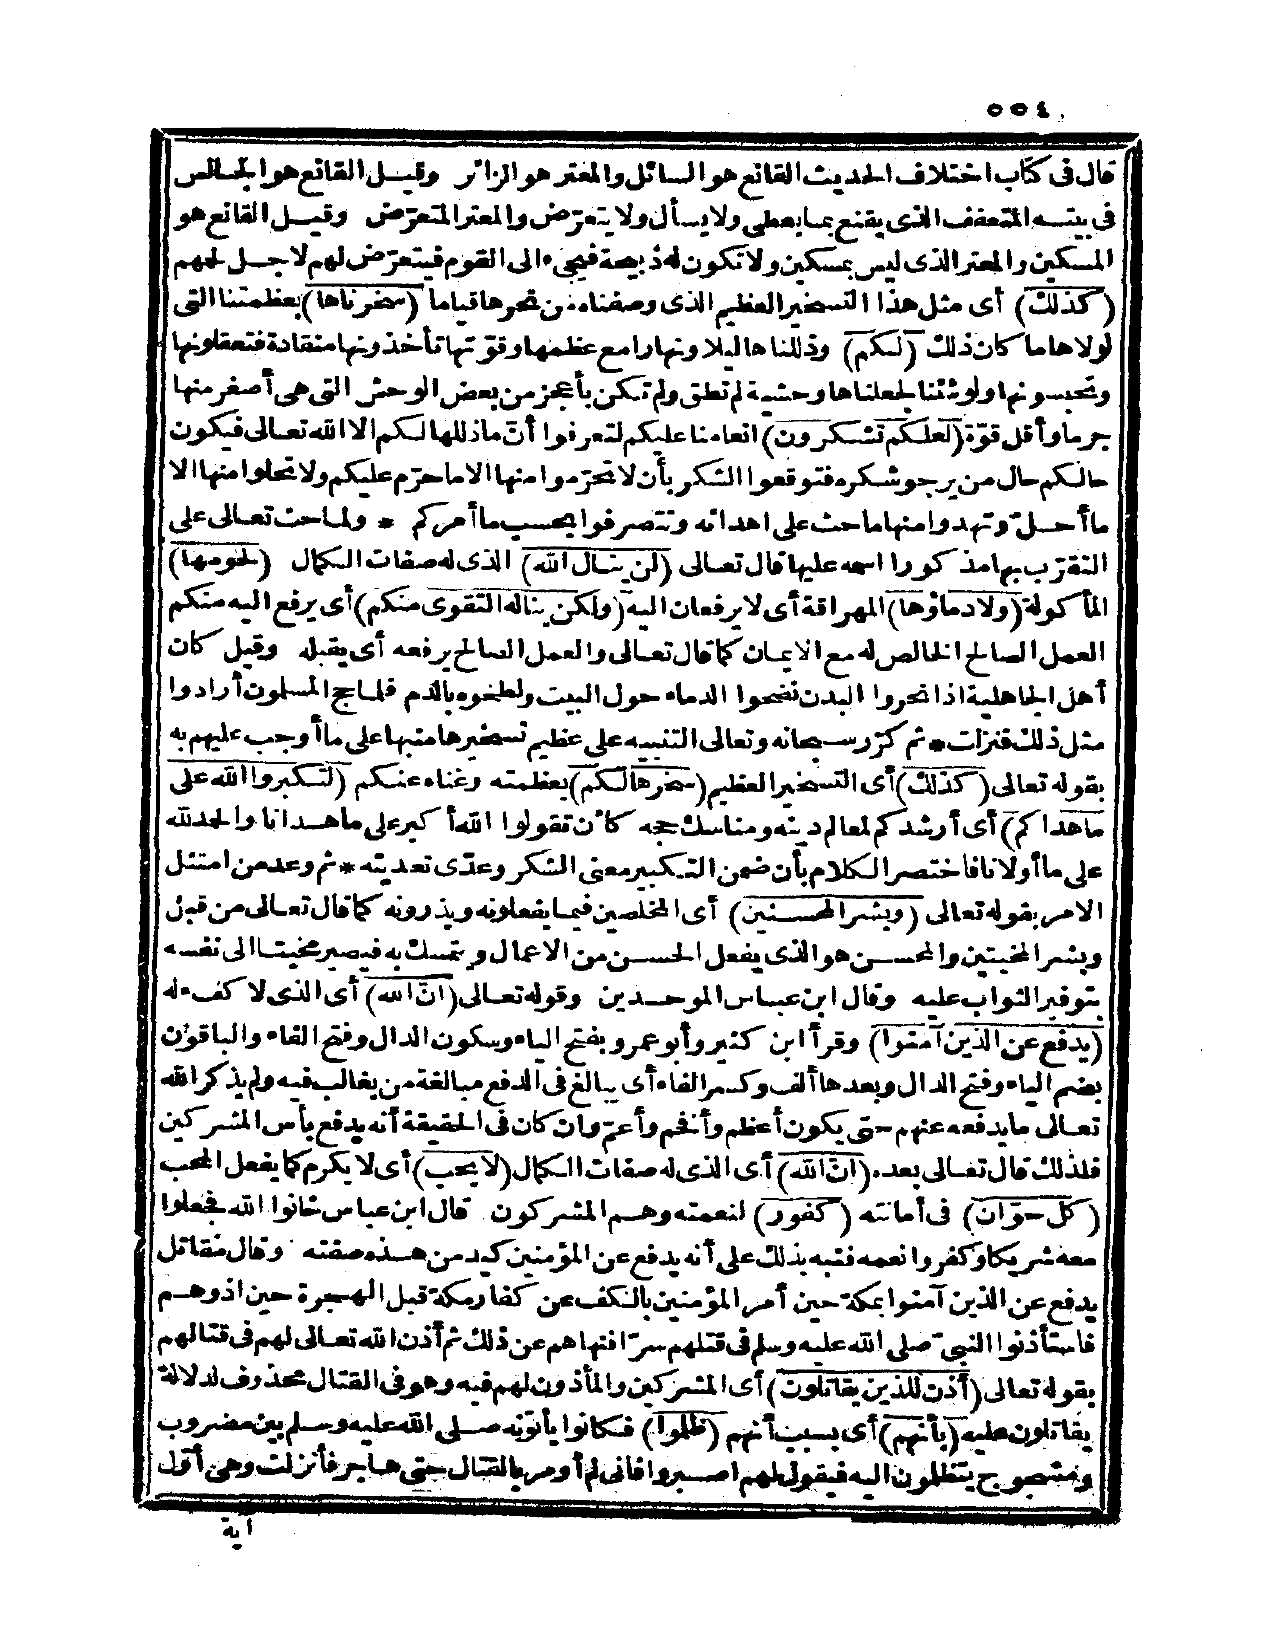 ٥٥٤
قال فى كتاب اختلاف الحديث القانع هو السائل والمعتر هو الزائر وقيل القانع هو الجالس
فى بيته المتعفف الذى يقنع بما يعطى ولا يسأل ولا يتعرّض والمعتر المتعرّض وقيل القانع هو
المسكين والمعتر الذى ليس بمسكين ولا تكون له ذبيحة فيجىء الى القوم فيتعرّض لهم لاجل لحمهم
(كذلك) أى مثل هذا التسخير العظيم الذى وصفناه من نحرها قياما (سخرناها) بعظمتنا التى
لولاها ما كان ذلك (لكم) وذللناها ليلا ونهارا مع عظمها وقوّتها تأخذونها منقادة فتعقلونها
وتحبسونها ولو شئنا لجعلناها وحشية لم تطق ولم تكن بأعجز من بعض الوحش التى هى أصغر منها
جرما وأقل قوّة (لعلكم تشكرون) انعامنا عليكم لتعرفوا أنّ ماذللها لكم الا الله تعالى فيكون
حالكم حال من يرجو شكره فتوقعوا الشكر بأن لا تحرّموا منها الا ما حرّم عليكم ولا تحلوا منها الا
ما أحلّ وتهدوا منها ما حث على اهدائه وتتصرفوا بحسب ما أمركم * ولما حث تعالى على
التقرّب بها مذكورا اسمه عليها قال تعالى (لن ينال الله) الذى له صفات الكمال (لحومها)
المأكولة (ولا دماؤها) المهراقة أى لا يرفعان اليه (ولكن يناله التقوى منكم) أى يرفع اليه منكم
العمل الصالح الخالص له مع الايمان كما قال تعالى والعمل الصالح يرفعه أى يقبله وقيل كان
أهل الجاهلية اذا نحروا البدن نضحوا الدماء حول البيت ولطخوه بالدم فلما حج المسلمون أرادوا
مثل ذلك فنزلت * ثم كرّر سبحانه وتعالى التنبيه على عظيم تسخيرها منبها على ما أوجب عليهم به
بقوله تعالى (كذلك) أى التسخير العظيم (سخرها لكم) بعظمته وغناه عنكم (لتكبروا الله على
ما هداكم) أى أرشدكم لمعالم دينه ومناسك حجه كأن تقولوا الله أكبر على ما هدانا والحمد لله
على ما أولانا فاختصر الكلام بأن ضمن التكبير معنى الشكر وعدّى تعديته * ثم وعد من امتثل
الامر بقوله تعالى (وبشر المحسنين) أى المخلصين فيما يفعلونه ويذرونه كما قال تعالى من قبل
وبشر المخبتين والمحسن هو الذى يفعل الحسن من الاعمال ويتمسك به فيصير مخبتا الى نفسه
بتوفير الثواب عليه وقال ابن عباس الموحدين وقوله تعالى (انّ الله) أى الذى لا كفء له
(يدفع عن الذين آمنوا) وقرأ ابن كثير وأبو عمرو بفتح الياء وسكون الدال وفتح الفاء والباقون
بضم الياء وفتح الدال وبعدها ألف وكسر الفاء أى يبالغ فى الدفع مبالغة من يغالب فيه ولم يذكر الله
تعالى ما يدفعه عنهم حتى يكون أعظم وأفخم وأعمّ وان كان فى الحقيقة أنه يدفع بأس المشركين
فلذلك قال تعالى بعده (انّ الله) أى الذى له صفات الكمال (لا يحب) أى لا يكرم كما يفعل المحب
(كل خوّان) فى أمانته (كفور) لنعمته وهم المشركون قال ابن عباس خانوا الله فجعلوا
معه شريكا وكفروا نعمه فنبه بذلك على أنه يدفع عن المؤمنين كيد من هذه صفته وقال مقاتل
يدفع عن الذين آمنوا بمكة حين أمر المؤمنين بالكف عن كفار مكة قبل الهجرة حين اذوهم
فاستأذنوا النبىّ صلى الله عليه وسلم فى قتلهم سرّا فنهاهم عن ذلك ثم أذن الله تعالى لهم فى قتالهم
بقوله تعالى (أذن للذين يقاتلون) أى المشركين والمأذون لهم فيه وهو فى القتال محذوف لدلالة
يقاتلون عليه (بأنهم) أى بسبب أنهم (ظلموا) فكانوا يأتونه صلى الله عليه وسلم بين مضروب
ومشجوج يتظلمون اليه فيقول لهم اصبروا فانى لم أومر بالقتال حتى هاجر فأنزلت وهى أوّل
آية